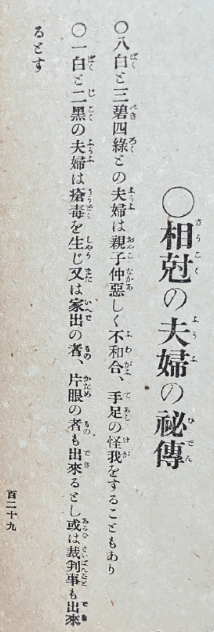 ○相尅の夫婦の祕傳
○八白と三碧四綠との夫婦は親子仲惡しく不和合、手足の怪我をすることもあり
○一白と二黑の夫婦は瘡毒を生じ又は家出の者、片眼の者も出來るとし或は裁判事も出來
るとす
百二十九